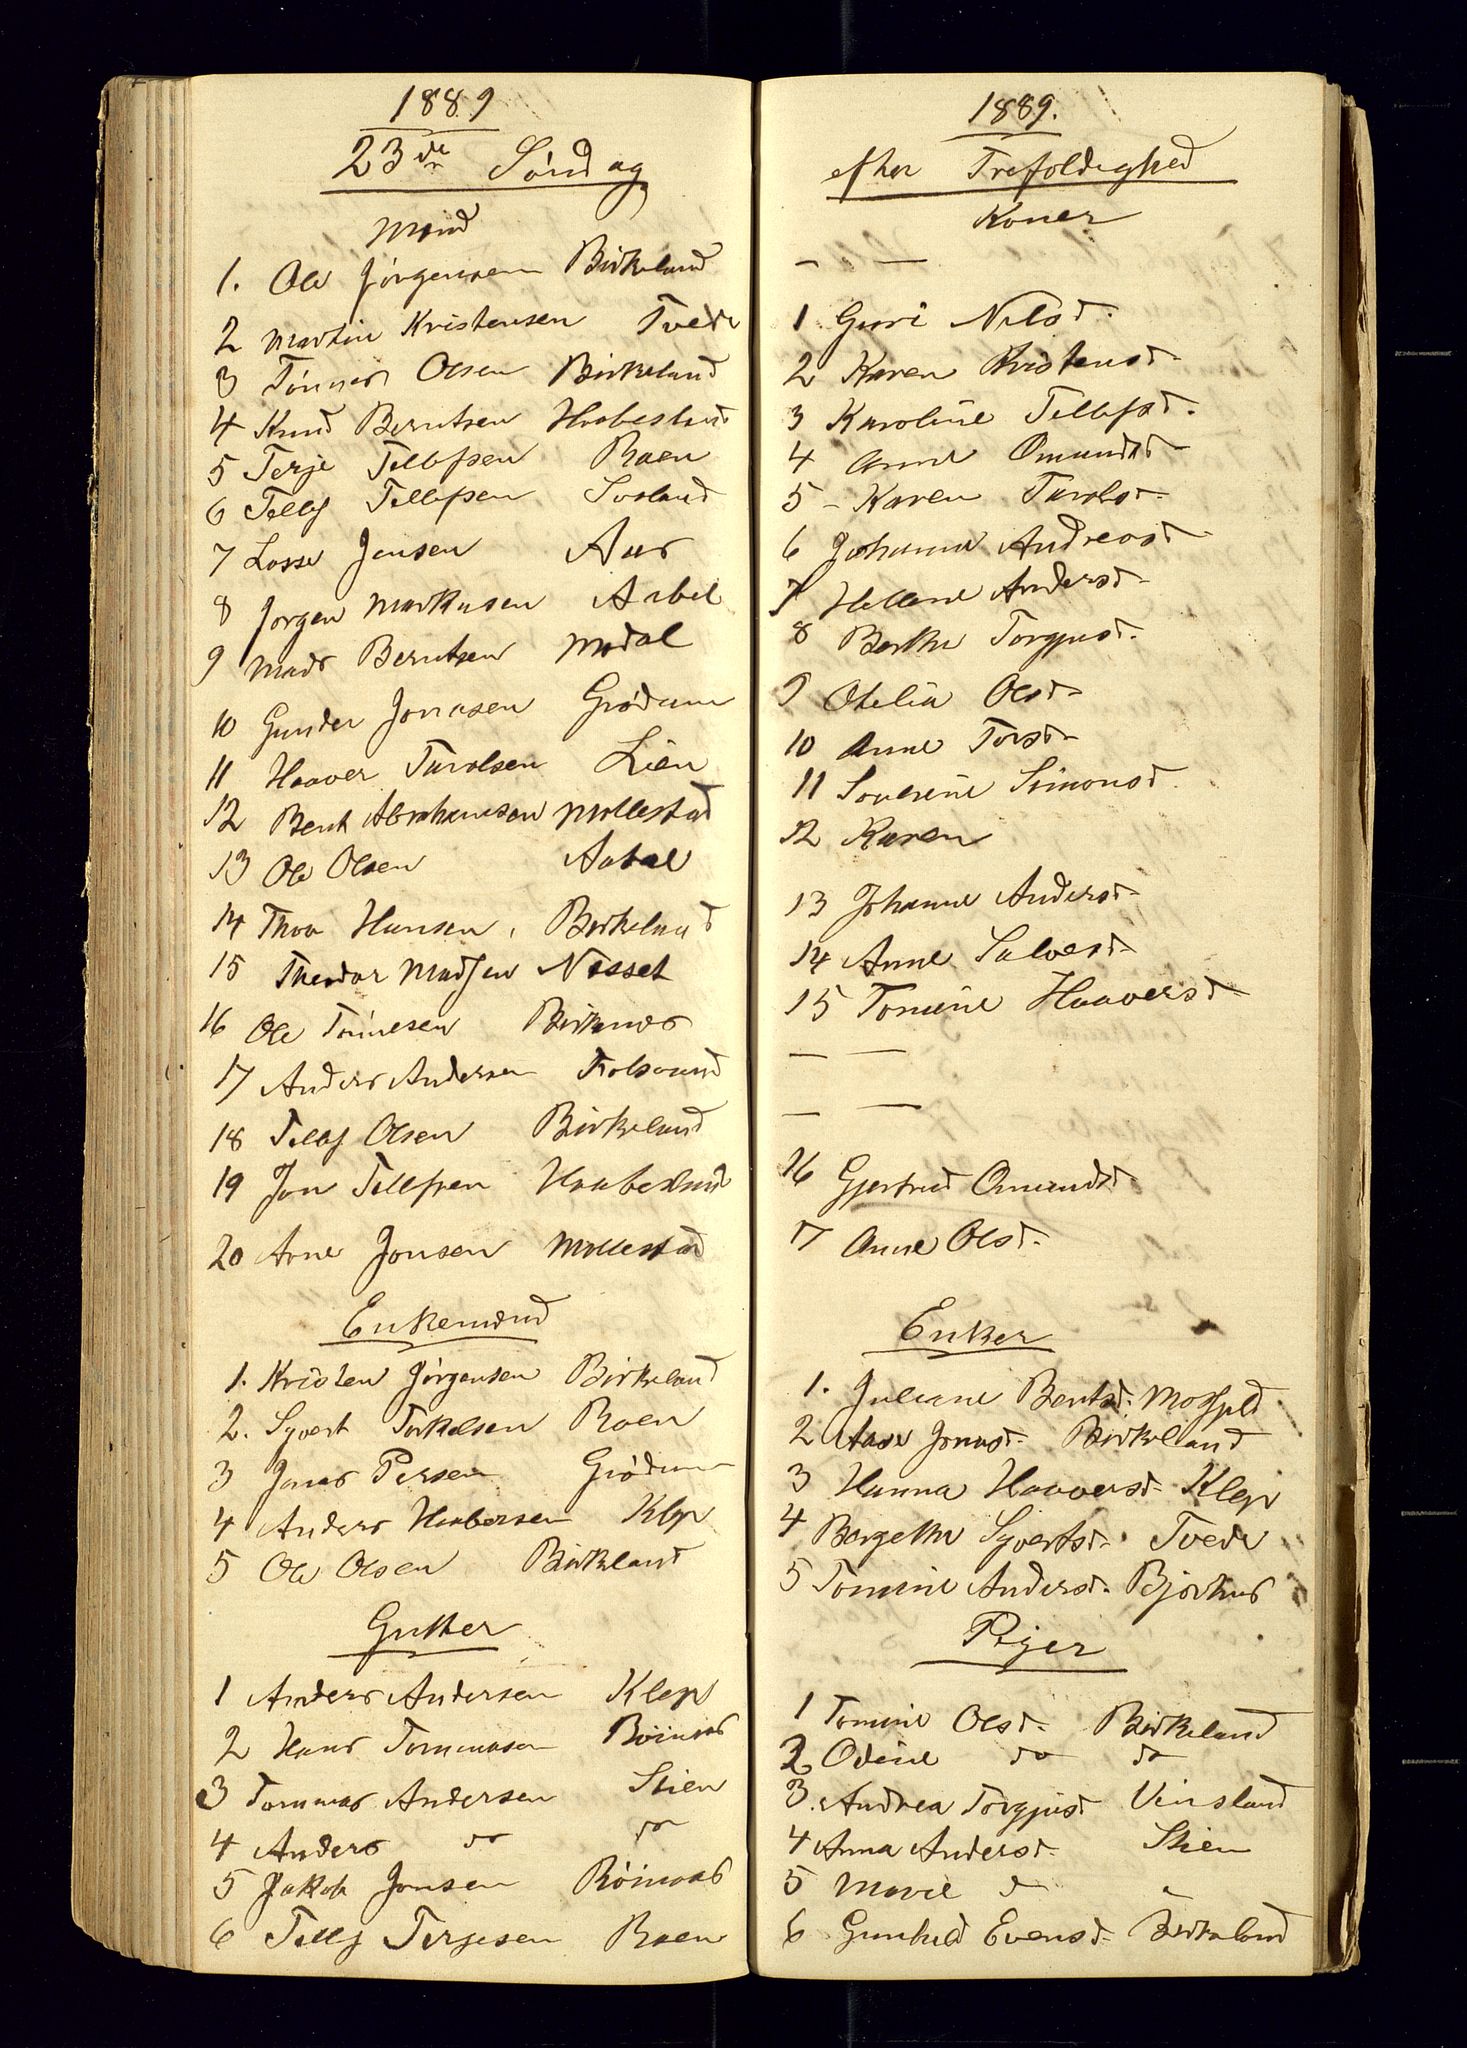 1889
23de Søndag
Mænd
1. Ole Jørgensen Birkeland
2 Martin Kristensen Tvede
3 Tønnes Olsen Birkeland
4 Knud Berntsen Haabesland
5 Terje Tellefsen Roen
6 Tellef Tellefsen Sosland
7 Lasse Jensen Aas
8 Jørgen Markusen Aabel
9 Mads Berntsen Modal
10 Gunder Jonasen Grødum
11 Haaver Tarolsen Lien
12 Bent Abrahamsen Mollestad
13 Ole Olsen Aabel
14 Thor Hansen Birkeland
15 Theodor Madsen Nesset
16 Ole Tønnesen
17 Anders Andersen
18 Tellef Olsen Birkeland
19 Jon Tellefsen Haabesland
20 Arne Jonsen Mollestad
Enkemænd
1. Kristen Jørgensen Birkeland
2. Syvert Terkelsen Roen
3 Jonas Persen Grødum
4 Anders Haabersen Klep
5 Ole Olsen Birkeland
Gutter
1 Anders Andersen Klep
2 Hans Tommasen Røinaas
3 Tommas Andersen Stien
4 Anders do do
5 Jakob Jonsen Røinaas
6 Tellef Terjesen Roen
1889.
efter Trefoldighed
Koner
— —
1 Guri Nilsd.
2 Karen Kristensd.
3 Karoline Tellefsd.
4 Anne Omundsd.
5 - Karen Tarolsd.
6 Johanne Andreasd.
7 Hellene Andersd.
8 Berthe Torgjusd.
9 Otelia Olsd.
10 Anne Torsd.
11 Severine Simonsd.
12 Karen
13 Johanne Andersd.
14 Anne Salvesd.
15 Tomine Haaversd.
— —
— —
16 Gjertrud Omundsd.
17 Anne Olsd.
Enker
1. Juliane Bentsd. Mosfjeld
2 Aase Jonasd. Birkeland
3 Hanna Haaversd. Klep
4 Bergethe Syvertsd. Tvede
5 Tomine Andersd.
Piger
1 Tomine Olsd. Birkeland
2 Odine do do
3. Andrea Torgjusd. Vinsland
4 Anna Andersd. Stien
5 Marie d "
6 Gunhild Evensd. Birkeland